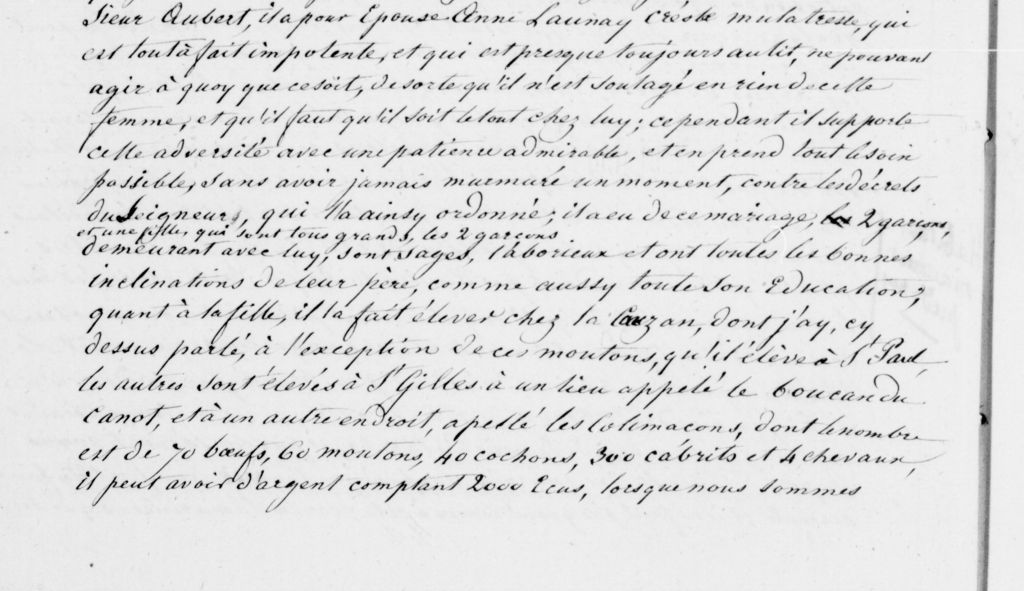 Sieur Aubert, il a pour Epouse Anne Launay créole mulatresse, qui
est tout à fait impotente, et qui est presque toujours au lit, ne pouvant
agir à quoy que ce soit, de sorte qu'il n'est soulagé en rien de cette
femme, et qu'il faut qu'il soit le tout chez luy; cependant il supporte
cette adversité avec une patience admirable, et en prend tout le soin
possible, sans avoir jamais murmuré un moment, contre les décrets
du Seigneur, qui l'a ainsy ordonné; il a eu de ce mariage, 2 garçons,
et une fille, qui sont tous grands, les 2 garçons
demeurant avec luy, sont sages, laborieux et ont toutes les bonnes
inclinations de leur père, comme aussy toute son Education;
quant à la fille, il la fait élever chez la Cauzan, dont j'ay, cy
dessus parlé, à l'exception de ces moutons, qu'il élève à St Paul,
les autres sont élevés à St Gilles à un lieu appelé le boucan du
canot, et à un autre endroit, apellé les Colimacons, dont le nombre
est de 70 bœufs, 60 moutons, 40 cochons, 300 cabrits et 4 chevaux,
il peut avoir d'argent comptant 2000 Ecus, lorsque nous sommes